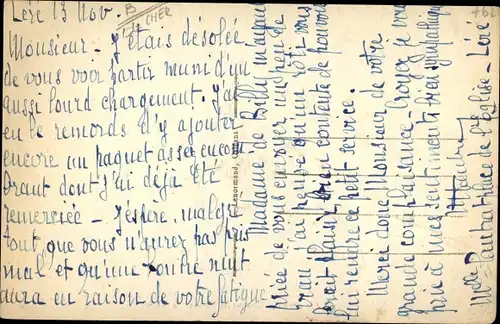 Léré 13 Nov.
B
12 CHER
Monsieur - J'étais désolée
de vous voir partir muni d'un
aussi lourd chargement. J'ai
eu le remords d'y ajouter
encore un paquet assez encom
brant dont j'ai déjà été
remerciée - J'espère, malgré
tout, que vous n'aurez pas pris
mal et qu'une bonne nuit
aura eu raison de votre fatigue
Madame de Billy m'ayant
priée de vous envoyer un peu de
j'ai pensé qu'un rôti vous
ferait plaisir, bien contente de pouvoir
lui rendre ce petit service.
Merci donc Monsieur de votre
grande complaisance - Croyez je vous
prie à mes sentiments bien sympathiques
Melle
rue de l'Église - Léré
Lenormand,